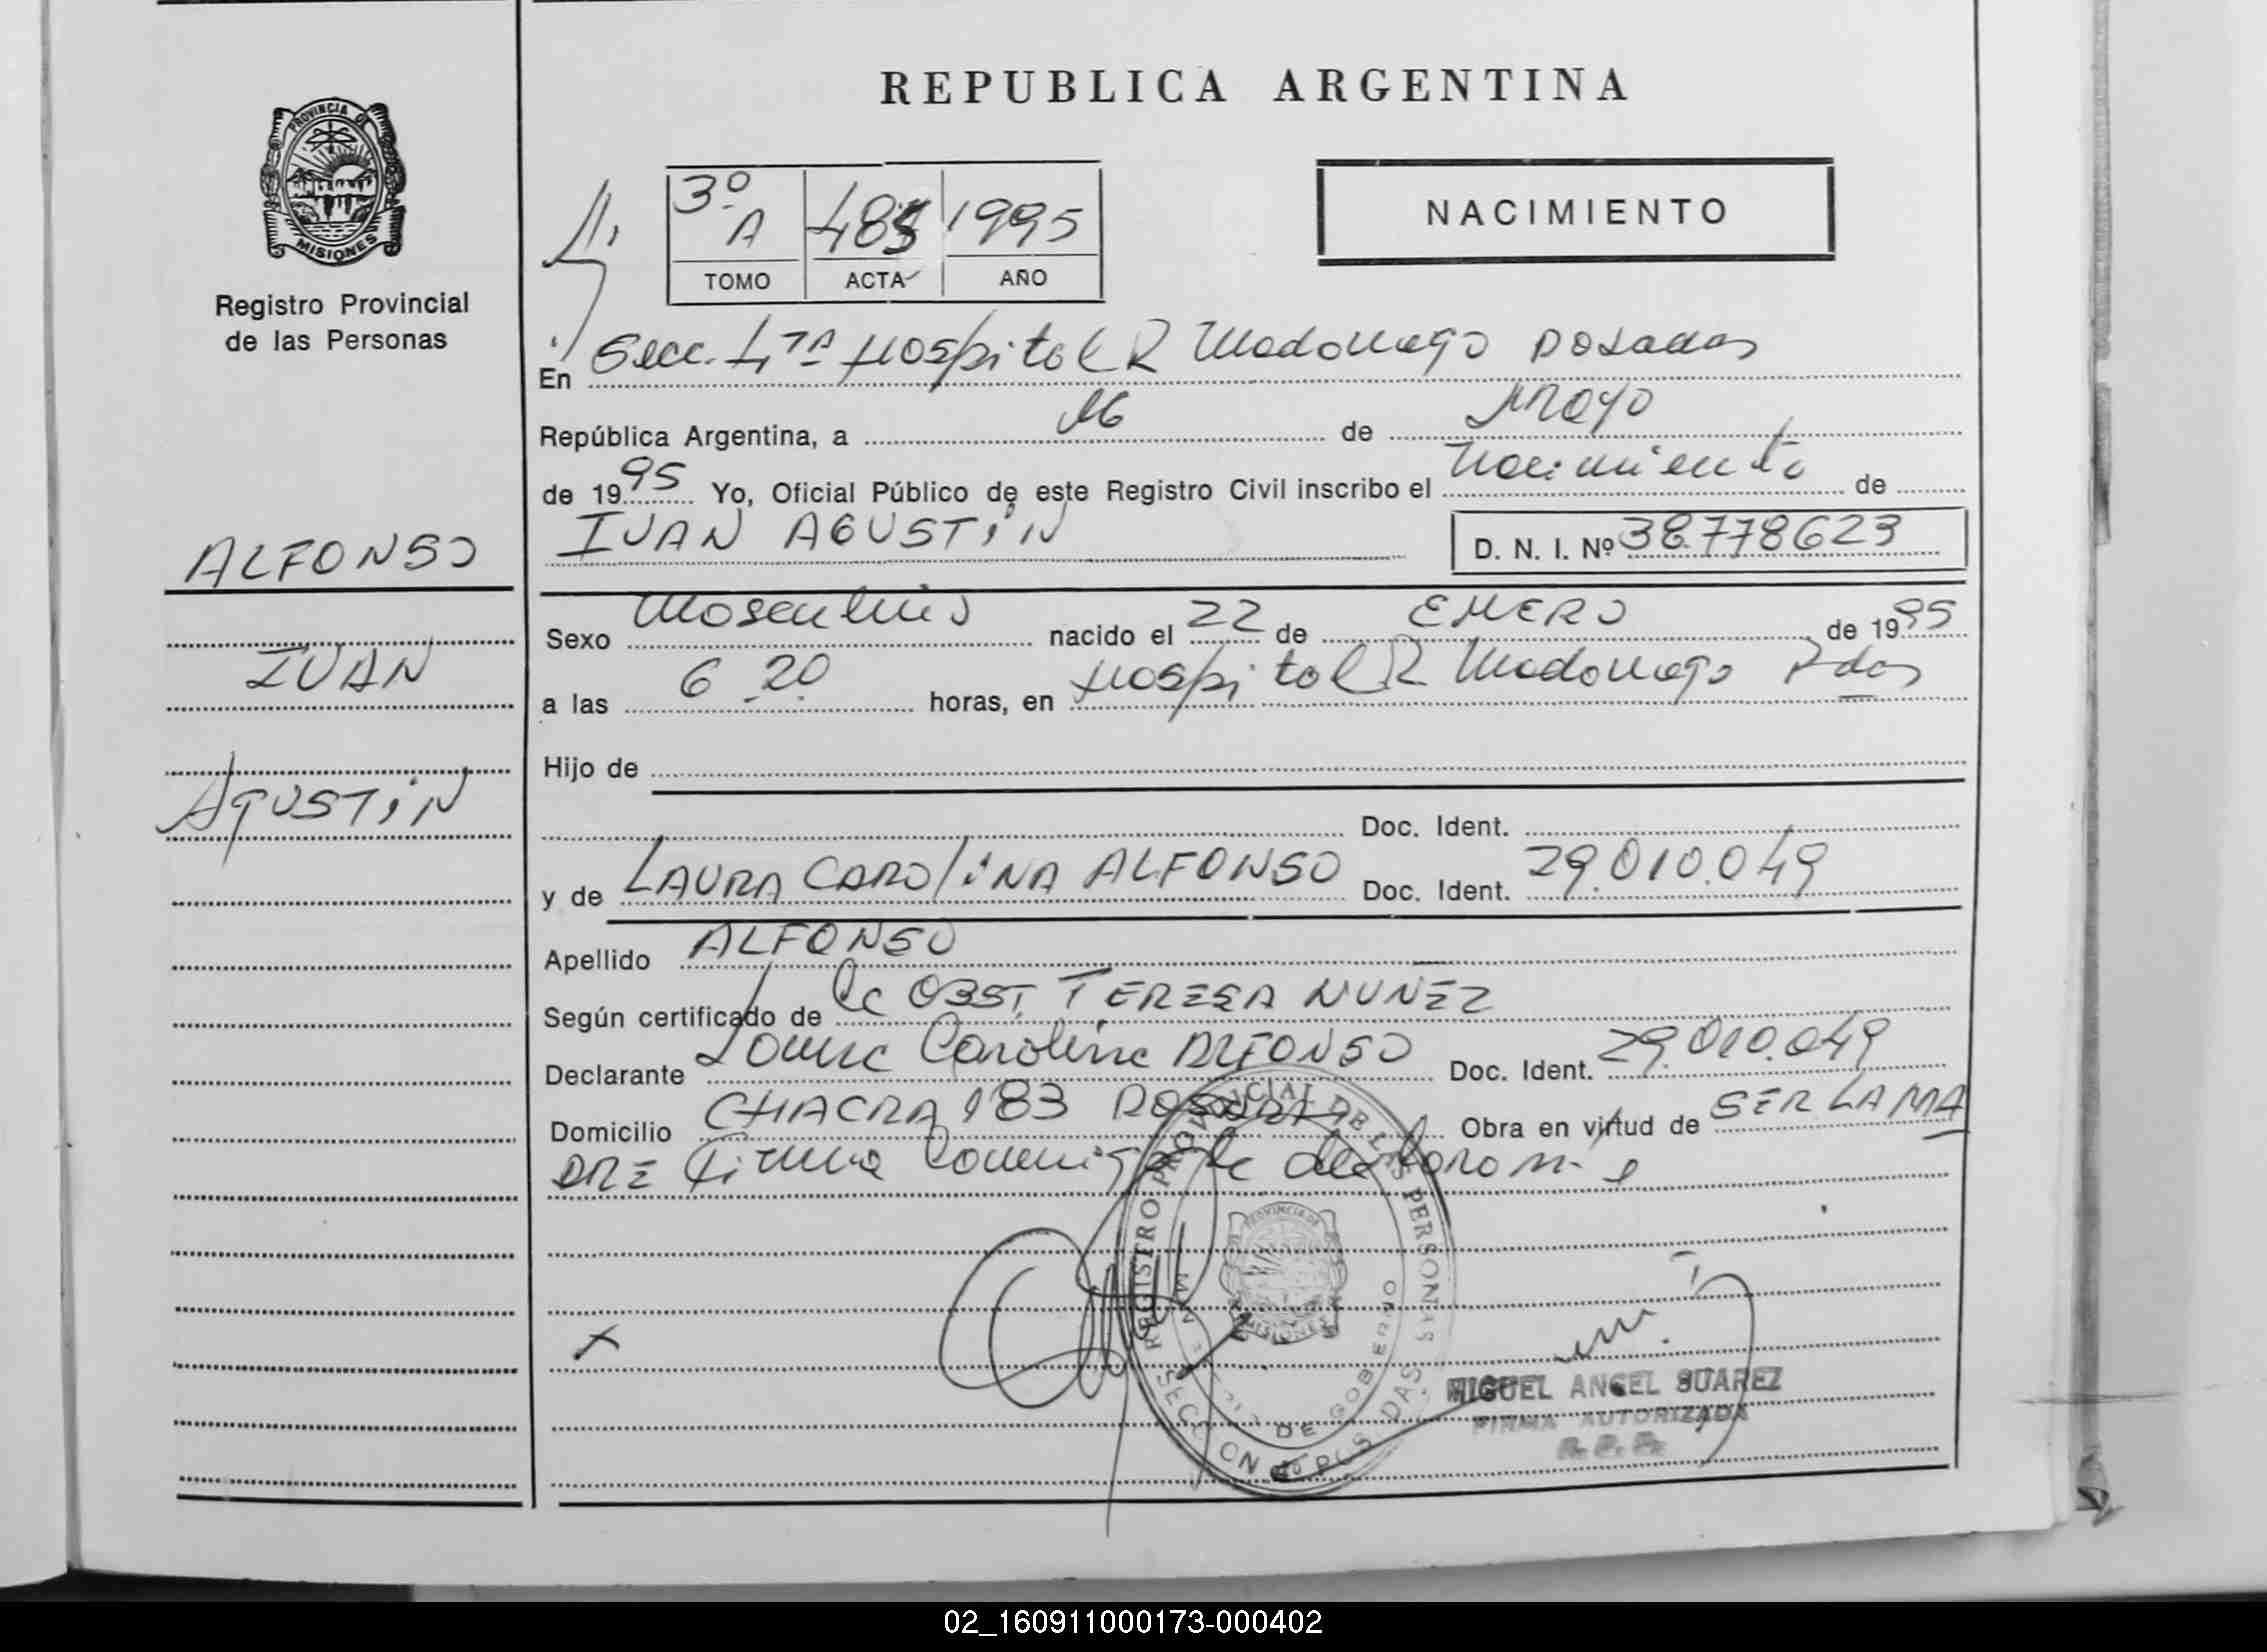 REPUBLICA ARGENTINA
PROVINCIA DE
MISIONES
Registro Provincial
de las Personas
NACIMIENTO
3º A 1995
TOMO ACTA AÑO
En Secc. 4ta Hospital R Madariaga Posadas
República Argentina, a 16 de Mayo
de 1995 Yo, Oficial Público de este Registro Civil inscribo el Nacimiento de
IVAN AGUSTIN D. N. I. Nº 38.778623
ALFONSO
IVAN
AGUSTIN
Sexo Masculino nacido el 22 de ENERO de 1995
a las 6 20 horas, en Hospital R Madariaga Pdas
Hijo de
Doc. Ident.
y de LAURA CAROLINA ALFONSO Doc. Ident. 29.010.049
Apellido ALFONSO
Según certificado de la OBST. TERESA NUÑEZ
Declarante Laura Carolina ALFONSO Doc. Ident. 29.010.049
Domicilio CHACRA 183 POSADAS Obra en virtud de SER LA MA
DRE Firma
REGISTRO PROVINCIAL DE LAS PERSONAS
DE GOBIERNO
SECCION PDAS
PROVINCIA DE
MISIONES
MIGUEL ANGEL SUAREZ
FIRMA AUTORIZADA
R. P. P.
02_160911000173-000402